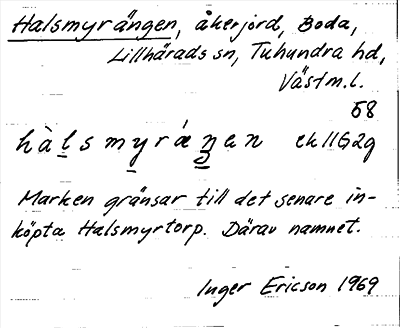 Halsmyrängen, åkerjord, Boda,
Lillhärads sn, Tuhundra hd,
Västm.l.
58
hàlsmyráŋen ek 11G2g
Marken gränsar till det senare in-
köpta Halsmyrtorp. Därav namnet.
Inger Ericson 1969